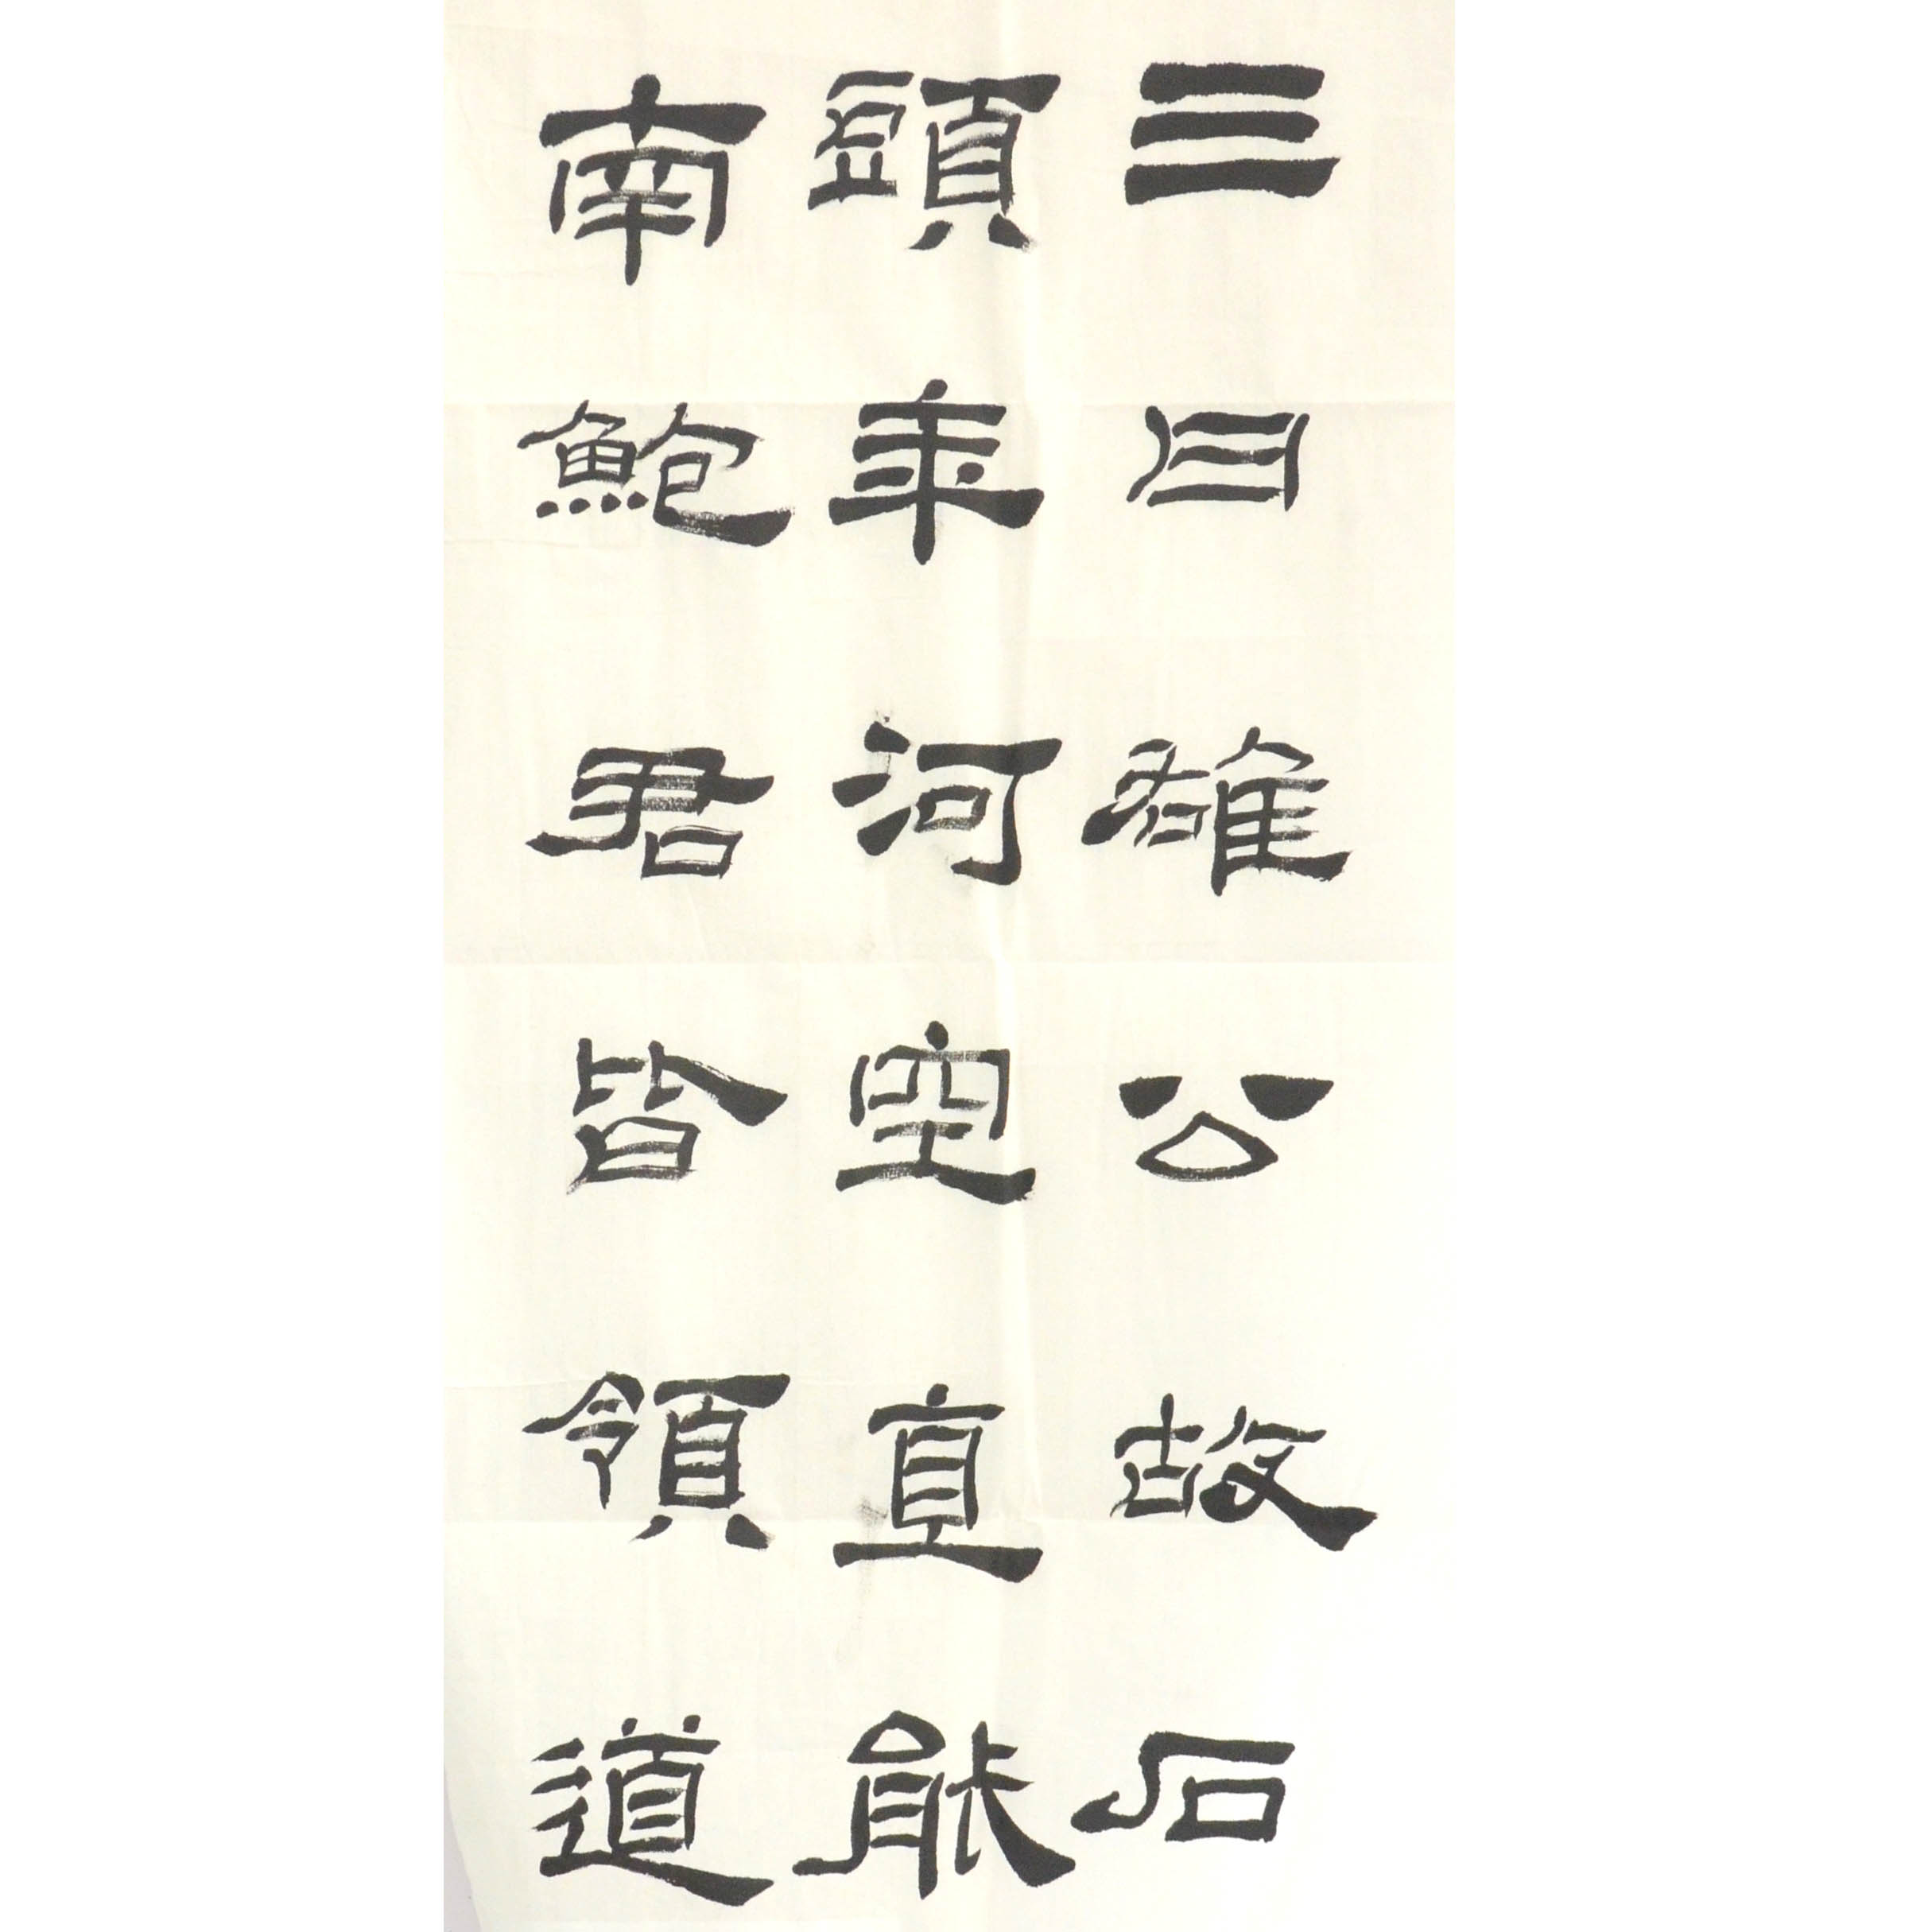 三曰雄公故石
頭年河空直能
南鮑君皆領道